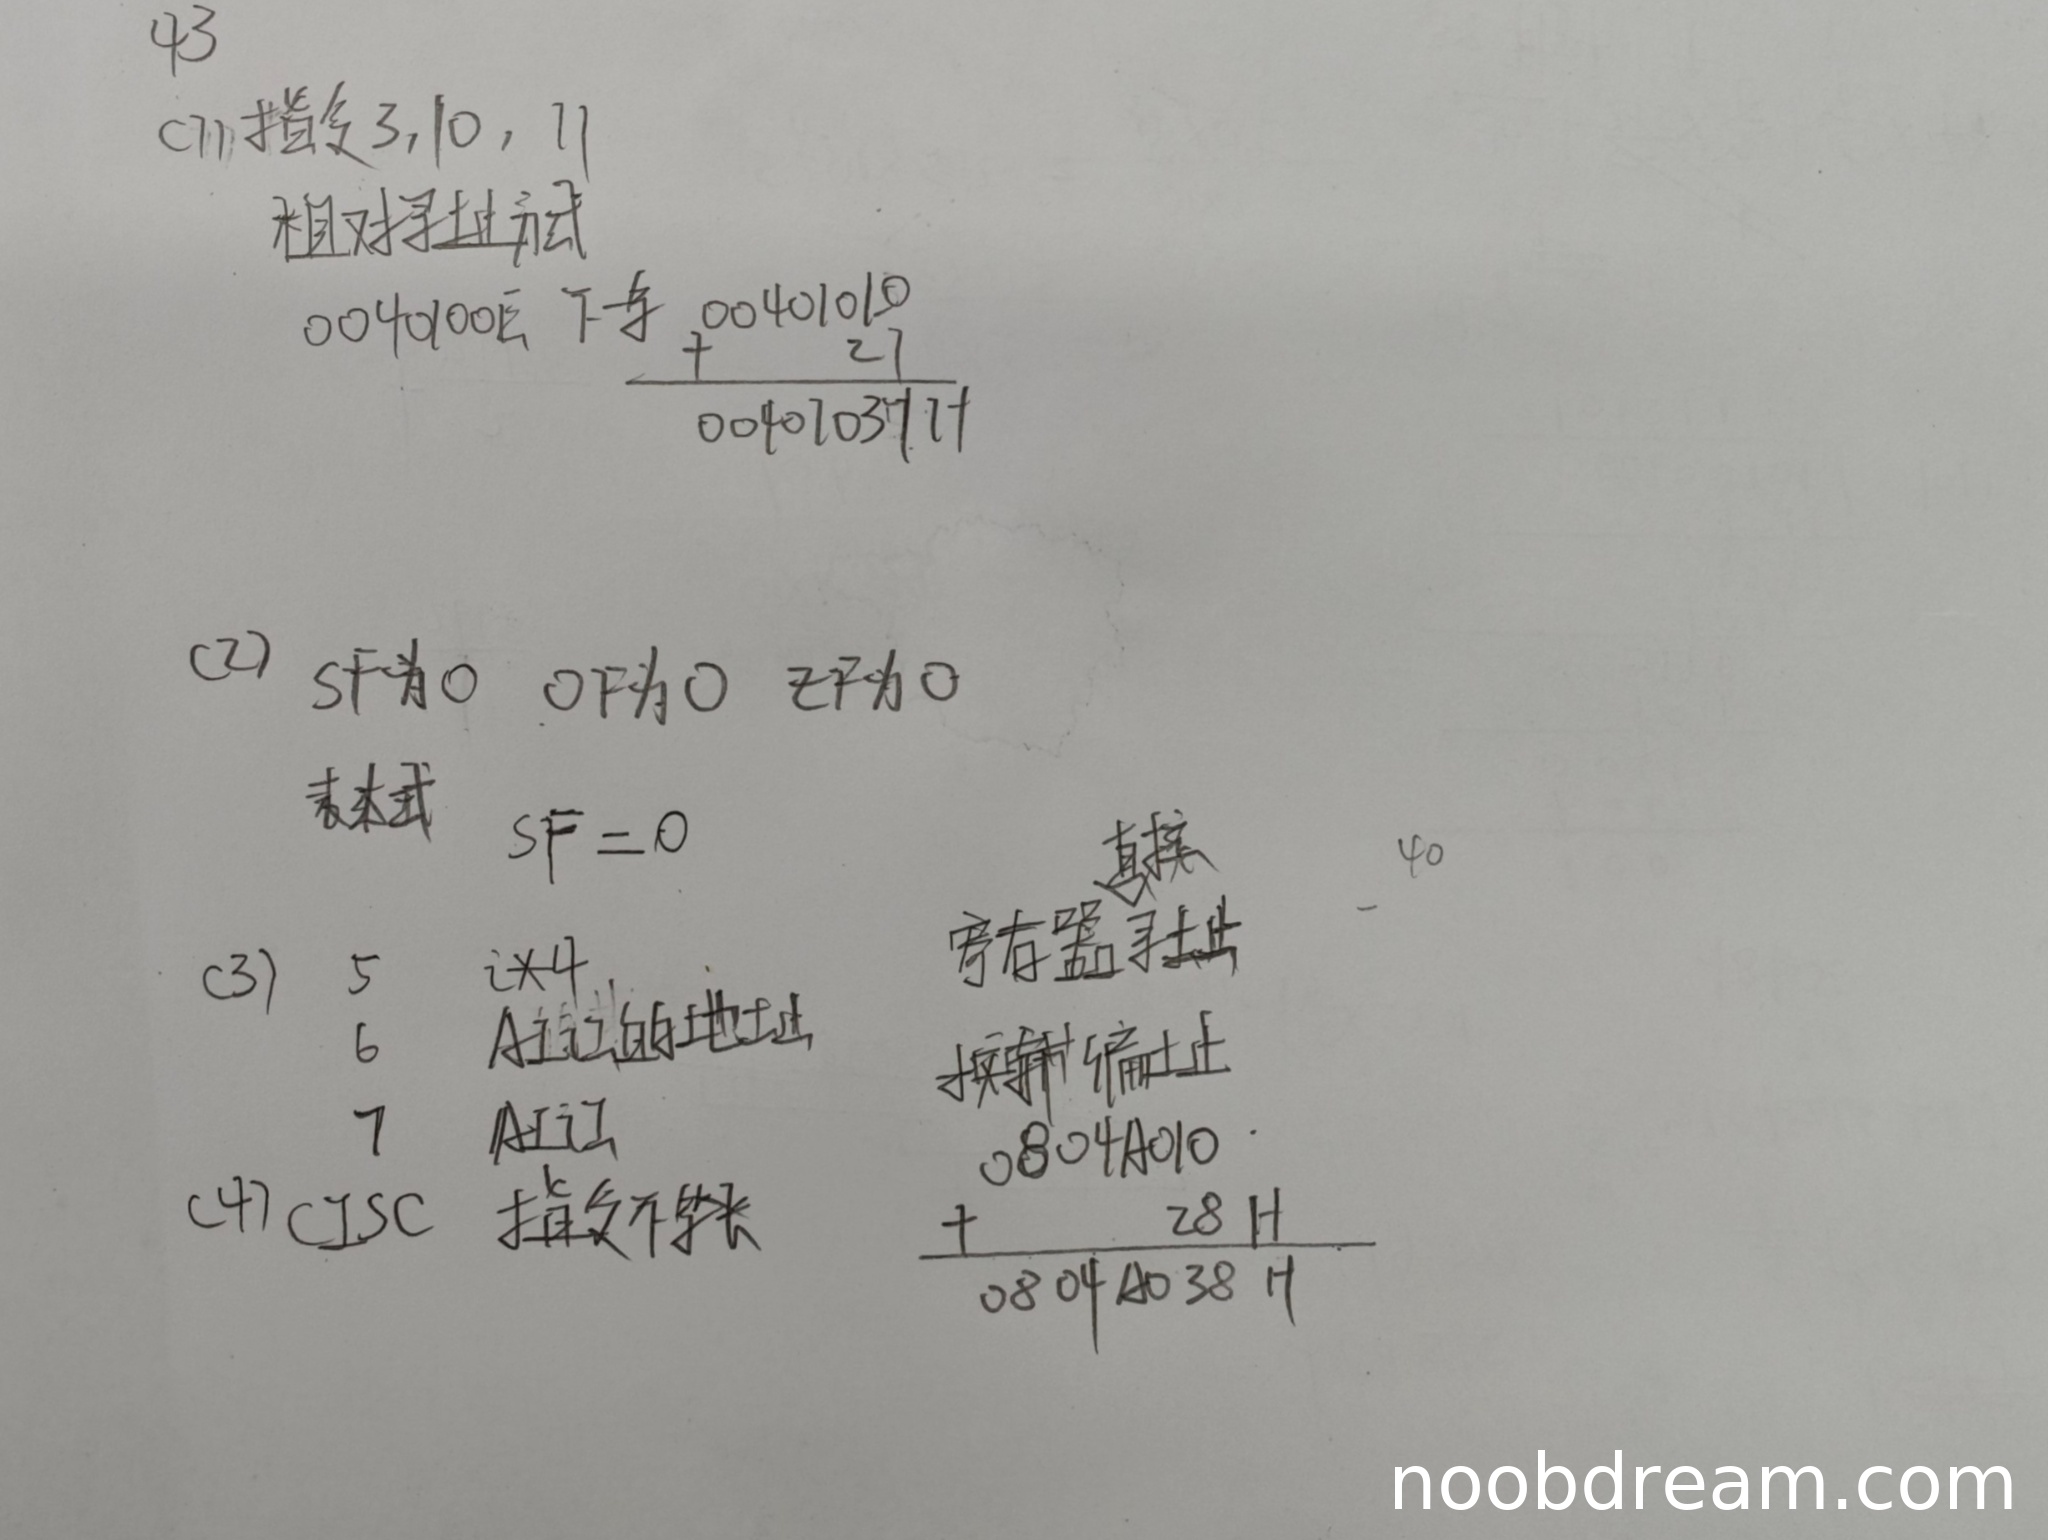 43
(1) 指令3,10,11
相对寻址方式
0040100E 下条 00401010
+ 27
00401037H
(2) SF为0 OF为0 ZF为0
表达式
SF=0
(3) 5 i*4
6 A[i]的地址
7 A[i]
(4) CISC 指令不等长
直接
寄存器寻址
40
-
0804A010
+ 28H
0804A038H
noobdream.com